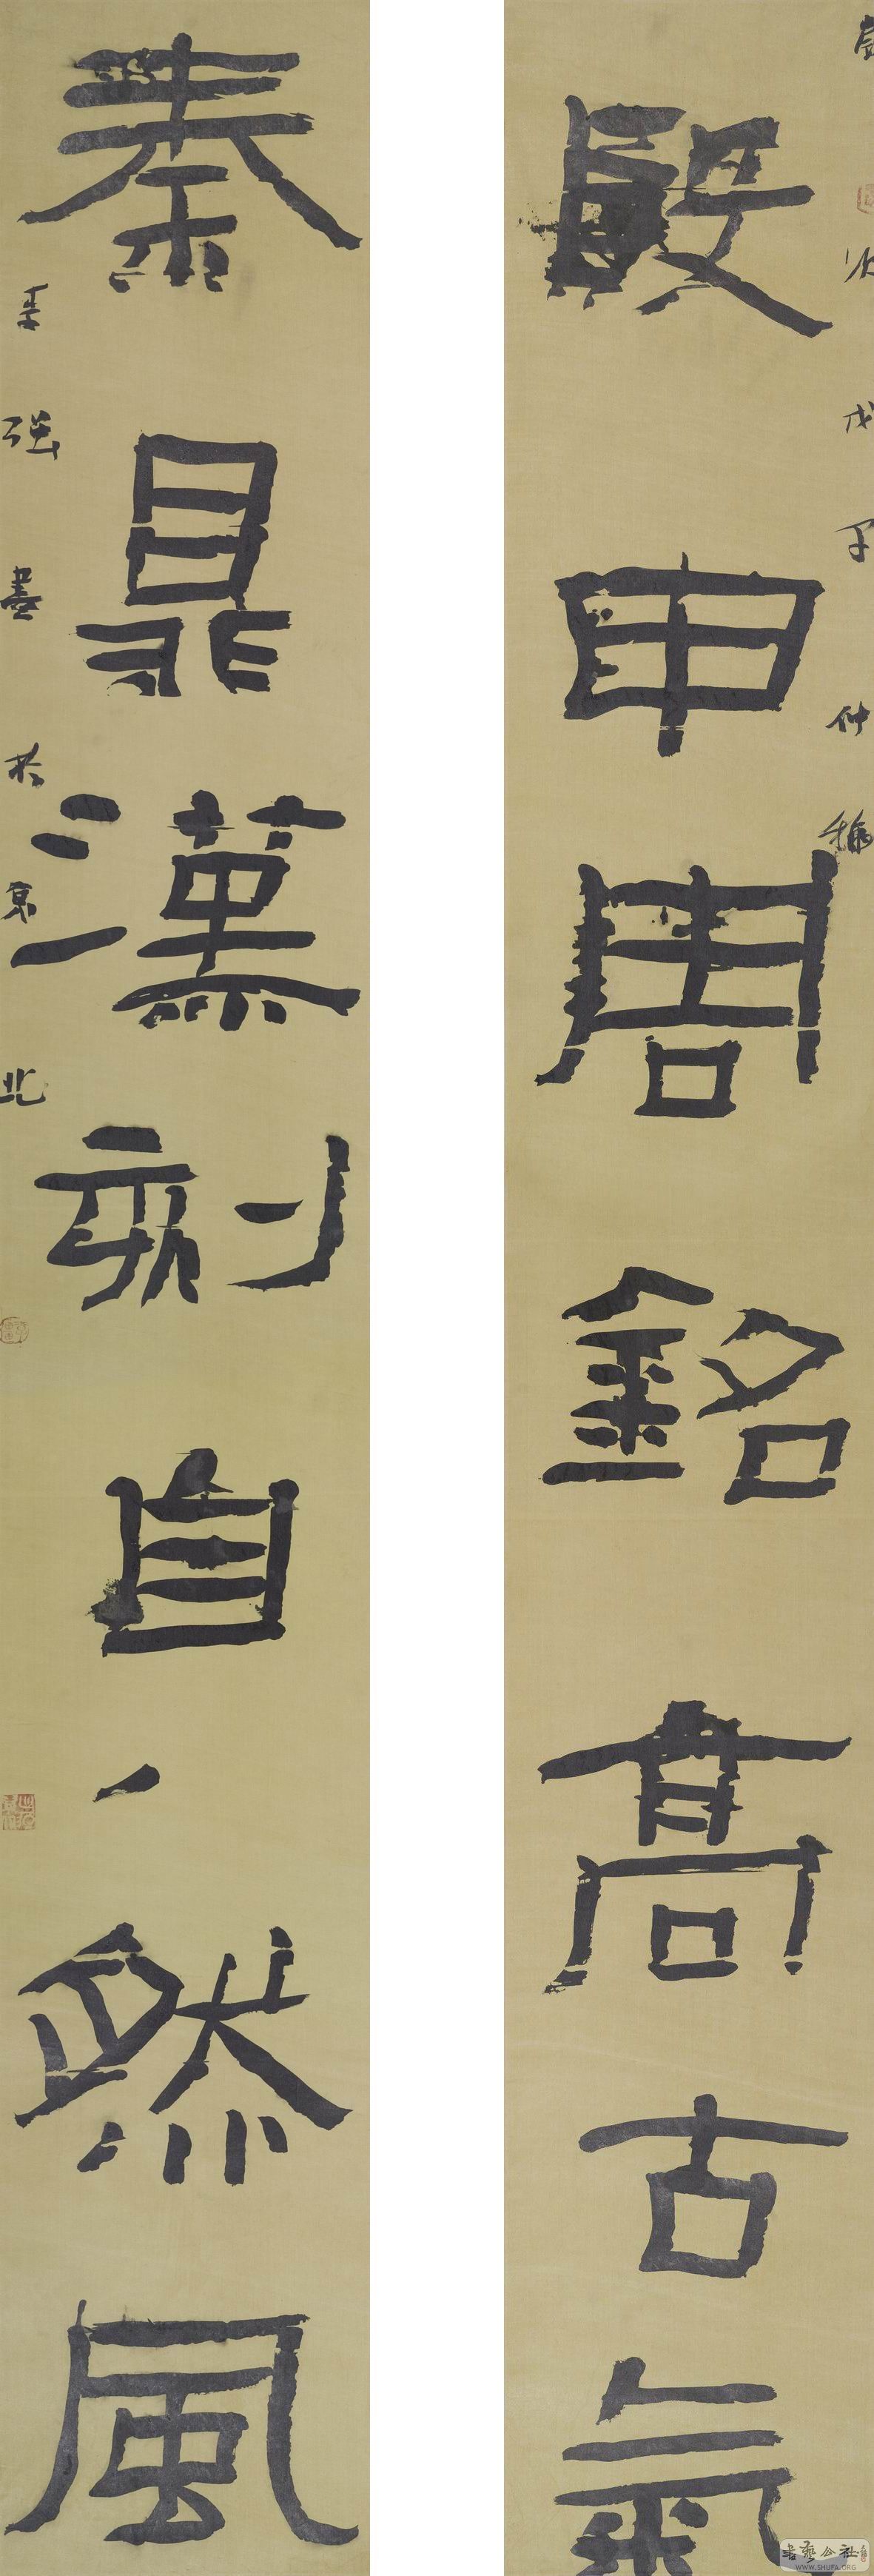 歲次戊子仲穐
殷甲周銘高古氣
秦鼎漢刻自然風
李强書於京北
書藝公社
WWW.SHUFA.ORG